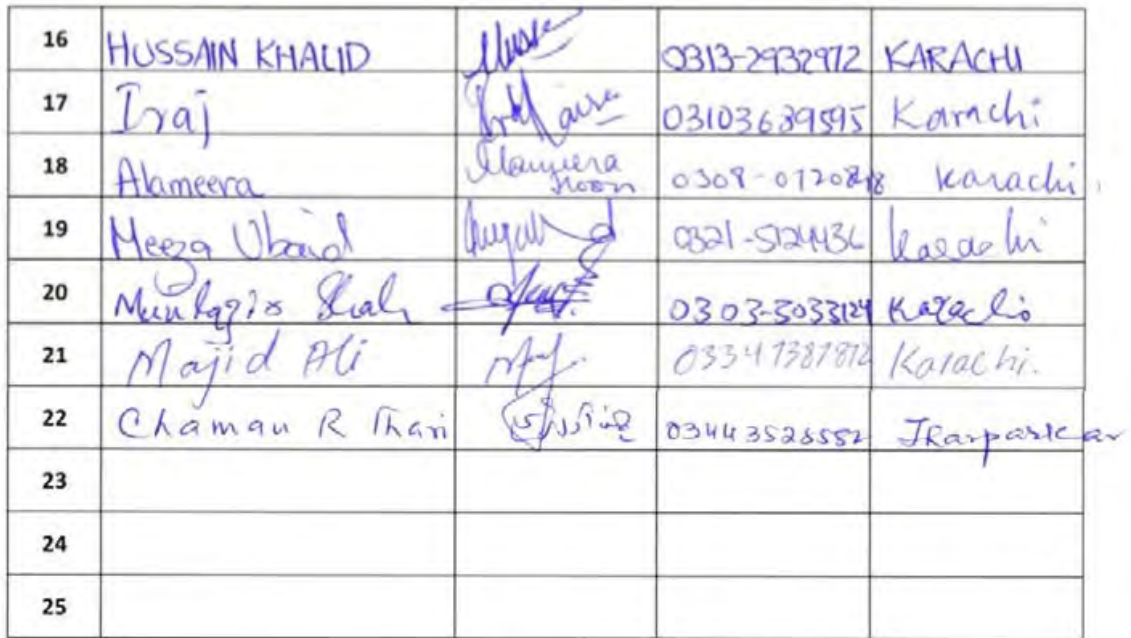 16 HUSSAIN KHALID 0313-2932972 KARACHI
17 Iraj 03103639595 Karachi
18 Alameera Karachi
19 Meeza Ubaid 0321-5124436
20 Shah 0303-3033124 Karachi
21 Majid Ali 03347387872 Karachi.
22 Chaman R Thari 03443528552 Tharparkar
23
24
25